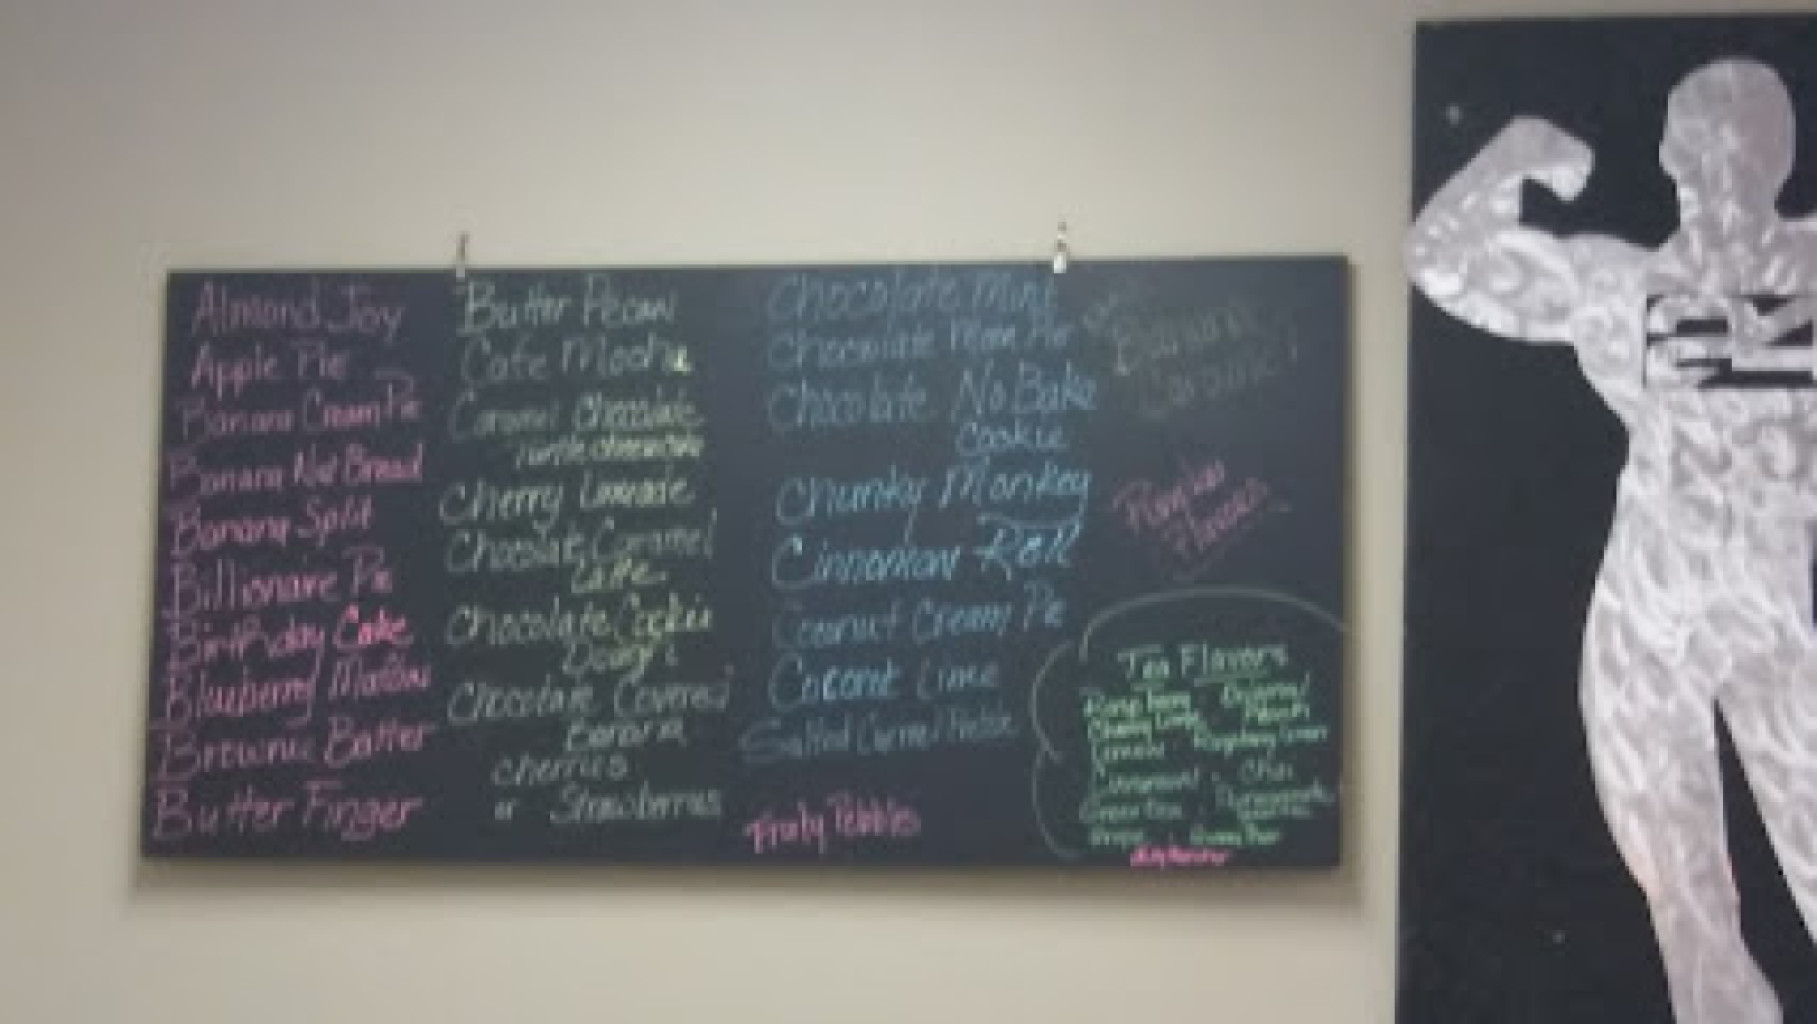 Almond Joy
Apple Pie
Banana Cream Pie
Banana Nut Bread
Banana Split
Billionaire Pie
Birthday Cake
Blueberry Muffin
Brownie Batter
Butter Finger
Butter Pecan
Cafe Mocha
Caramel Chocolate
Turtle Cheesecake
Cherry Limeade
Chocolate Caramel
Latte
Chocolate Cookie
Dough
Chocolate Covered
Banana
Cherries
or Strawberries
Chocolate Mint
Chocolate Pecan Pie
Chocolate No Bake
Cookie
Chunky Monkey
Cinnamon Roll
Coconut Cream Pie
Coconut Lime
Salted Carmel Pretzle
Fruity Pebbles
Banana
Caramel
Pumpkin
Flavors
Tea Flavors
Raspberry Original
Peach
Lemon
Cinnamon Chai
Green Tea Pomegranate
Grape